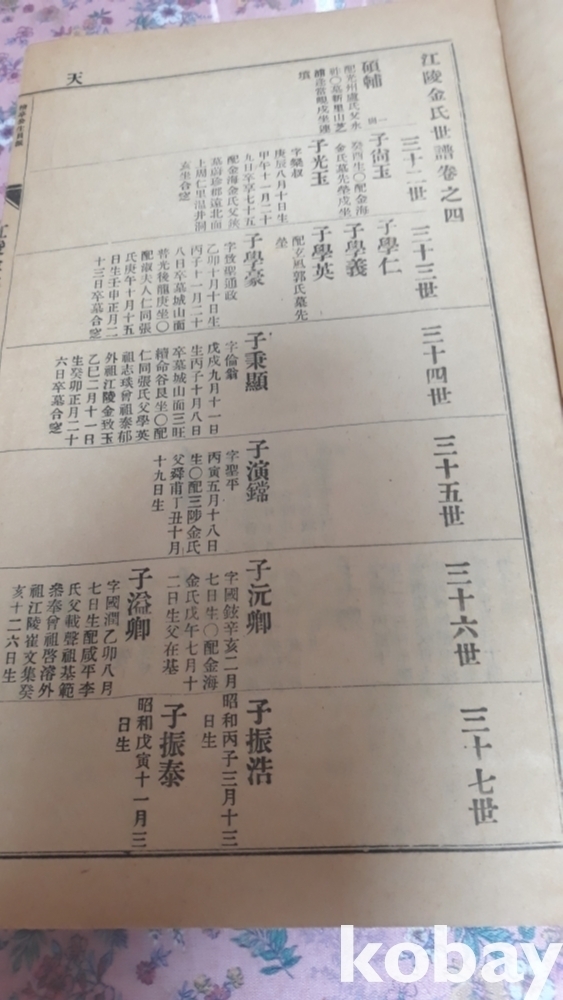 天
江陵金氏世譜卷之四
三十二世
碩輔
配光州盧氏父永
旿〇墓新里山芝
墳
子尙玉
癸酉生〇配金海
金氏墓先塋戌坐
子光玉
字榮叔
庚辰八月十日生
甲午十一月二十
九日卒享七十五
配金海金氏父
墓蔚珍郡遠北面
上周仁里溫井洞
亥坐合窆
三十三世
子學仁
子學義
子學英
配玄風郭氏墓先
塋
子學豪
字致聖通政
乙卯十月十日生
丙子十一月二十
八日卒墓城山面
普光後龍庚坐〇
配淑夫人仁同張
氏庚午十月十五
日生壬申正月二
十三日卒墓合窆
三十四世
子秉顯
字倫翁
戊戌九月十一日
生丙子十月八日
卒墓城山面三旺
續命谷艮坐〇配
仁同張氏父學英
祖志琰曾祖泰郁
外祖江陵金致玉
乙巳二月十一日
生癸卯正月二十
六日卒墓合窆
三十五世
子演鐺
字聖平
丙寅五月十八日
生〇配三陟金氏
父舜甫丁丑十月
十九日生
三十六世
子沅卿
字國鉉辛亥二月
七日生〇配金海
金氏戊午七月十
二日生父在基
子溢卿
字國潤乙卯八月
七日生配咸平李
氏父載聲祖基範
叅奉曾祖啓濬外
祖江陵崔文集癸
亥十二六日生
三十七世
子振浩
昭和丙子三月十三
日生
子振泰
昭和戊寅十一月三
日生
kobay